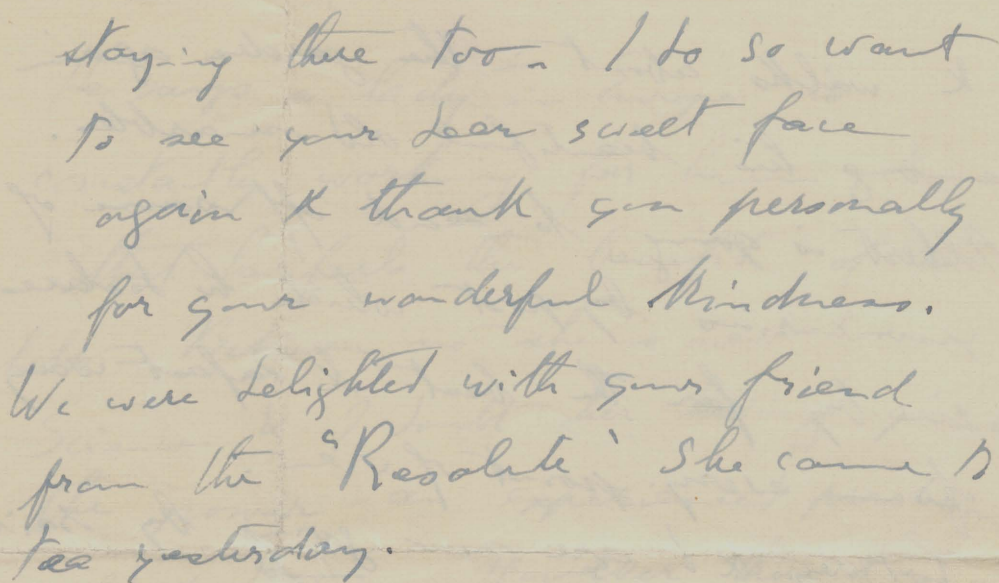 staying there too. I do so want
to see your dear sweet face
again & thank you personally
for your wonderful kindness.
We were delighted with your friend
from the "Resolute" She came to
tea yesterday.